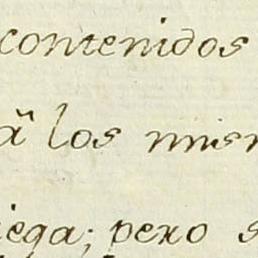 contenidos
ã los mism
iega; pero s